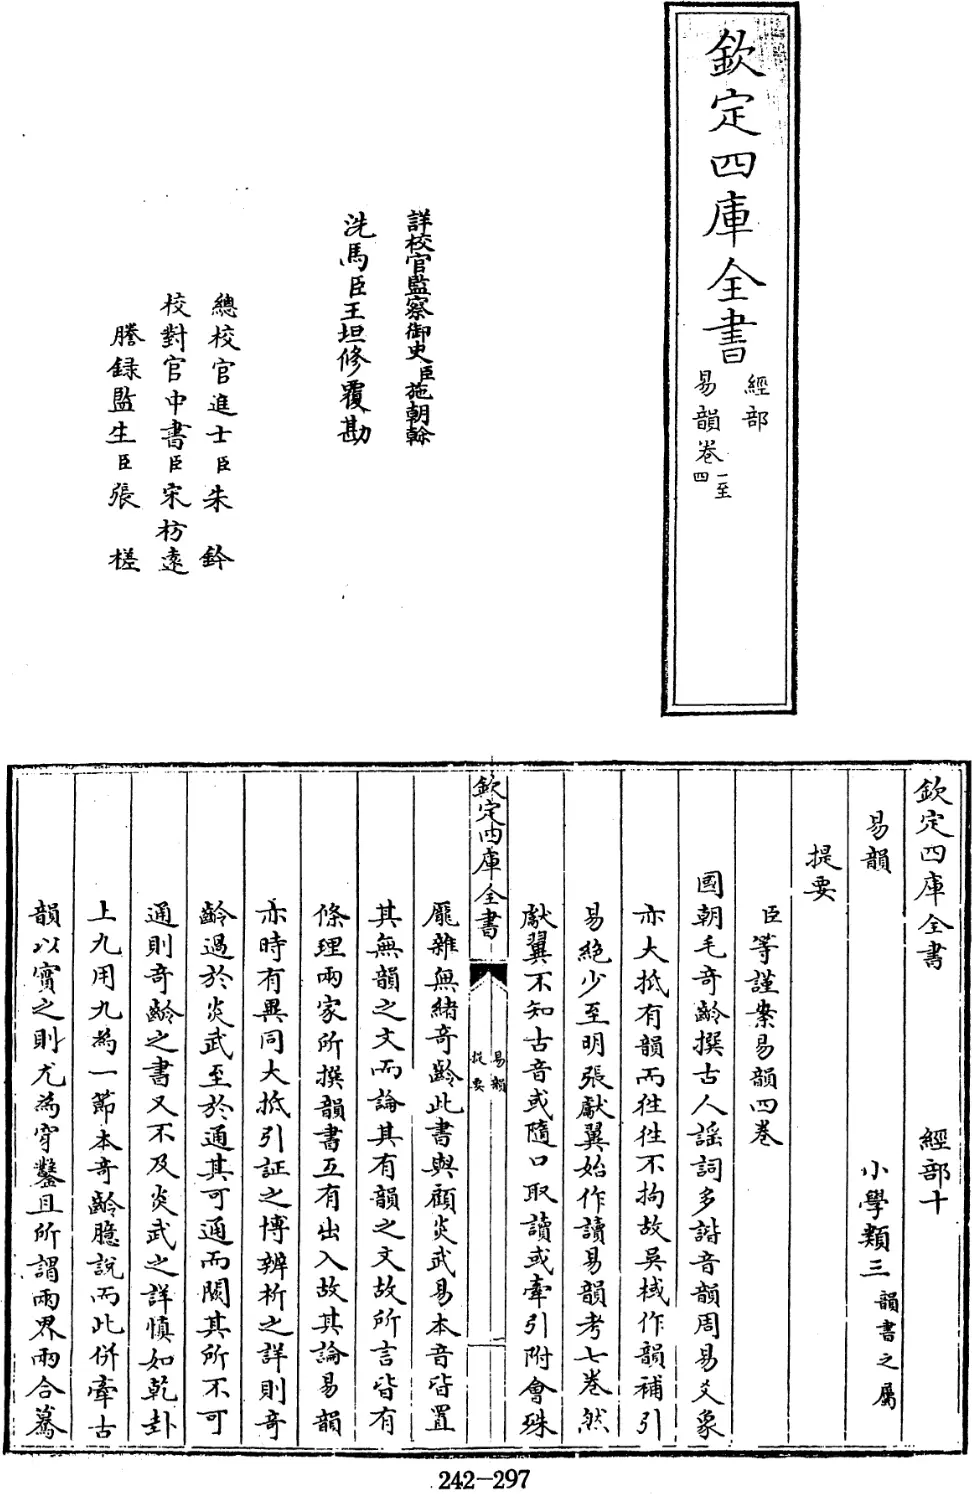 欽定四庫全書
經部
易韻卷一至四
詳校官監察御史臣施朝幹
洗馬臣王坦修覆勘
總校官進士臣朱鈐
校對官中書臣宋枋遠
謄録監生臣張槎
欽定四庫全書　經部十
易韻　小學類三韻書之屬
提要
臣等謹案易韻四卷
國朝毛奇齡撰古人謡詞多諧音韻周易爻象
亦大抵有韻而徃徃不拘故吳棫作韻補引
易絶少至明張獻翼始作讀易韻考七卷然
獻翼不知古音或隨口取讀或牽引附會殊
欽定四庫全書
易韻
提要
一
龎雜無緒奇齡此書與顧炎武易本音皆置
其無韻之文而論其有韻之文故所言皆有
條理兩家所撰韻書互有出入故其論易韻
亦時有異同大抵引証之博辨析之詳則奇
齡過於炎武至於通其可通而闕其所不可
通則奇齡之書又不及炎武之詳慎如乾卦
上九用九為一節本奇齡臆說而此併牽古
韻以實之則尤為穿鑿且所謂兩界兩合驀
242-297